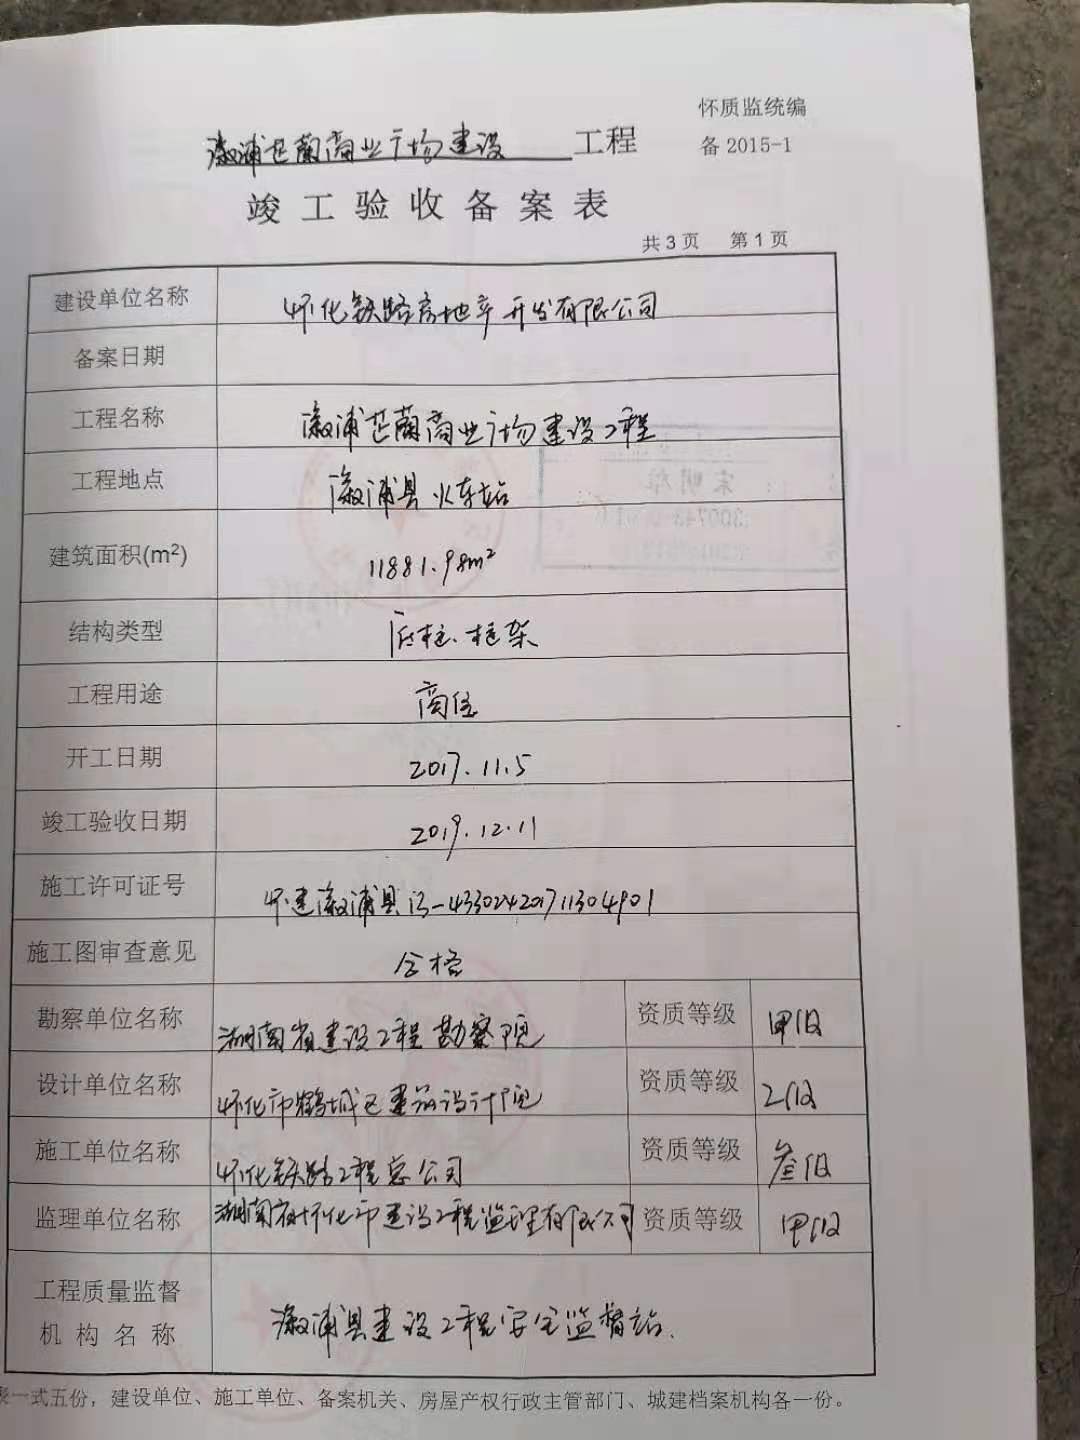 怀质监统编
溆浦芷蘭商业广场建设 工程
备 2015-1
竣工验收备案表
共 3 页 第 1 页
建设单位名称 怀化铁路房地产开发有限公司
备案日期
工程名称 溆浦芷蘭商业广场建设工程
工程地点 溆浦县火车站
建筑面积(m²) 11881.98m²
结构类型 框架
工程用途 商住
开工日期 2017.11.5
竣工验收日期 2019.12.11
施工许可证号 怀建溆浦县记-433024201711304901
施工图审查意见 合格
勘察单位名称 湖南省建设工程勘察院 资质等级 甲级
设计单位名称 怀化市鹤城区建筑设计院 资质等级 乙级
施工单位名称 怀化铁路工程总公司 资质等级 叁级
监理单位名称 湖南省怀化市建设工程监理有限公司 资质等级 甲级
工程质量监督
机构名称 溆浦县建设工程安全监督站.
表一式五份，建设单位、施工单位、备案机关、房屋产权行政主管部门、城建档案机构各一份。